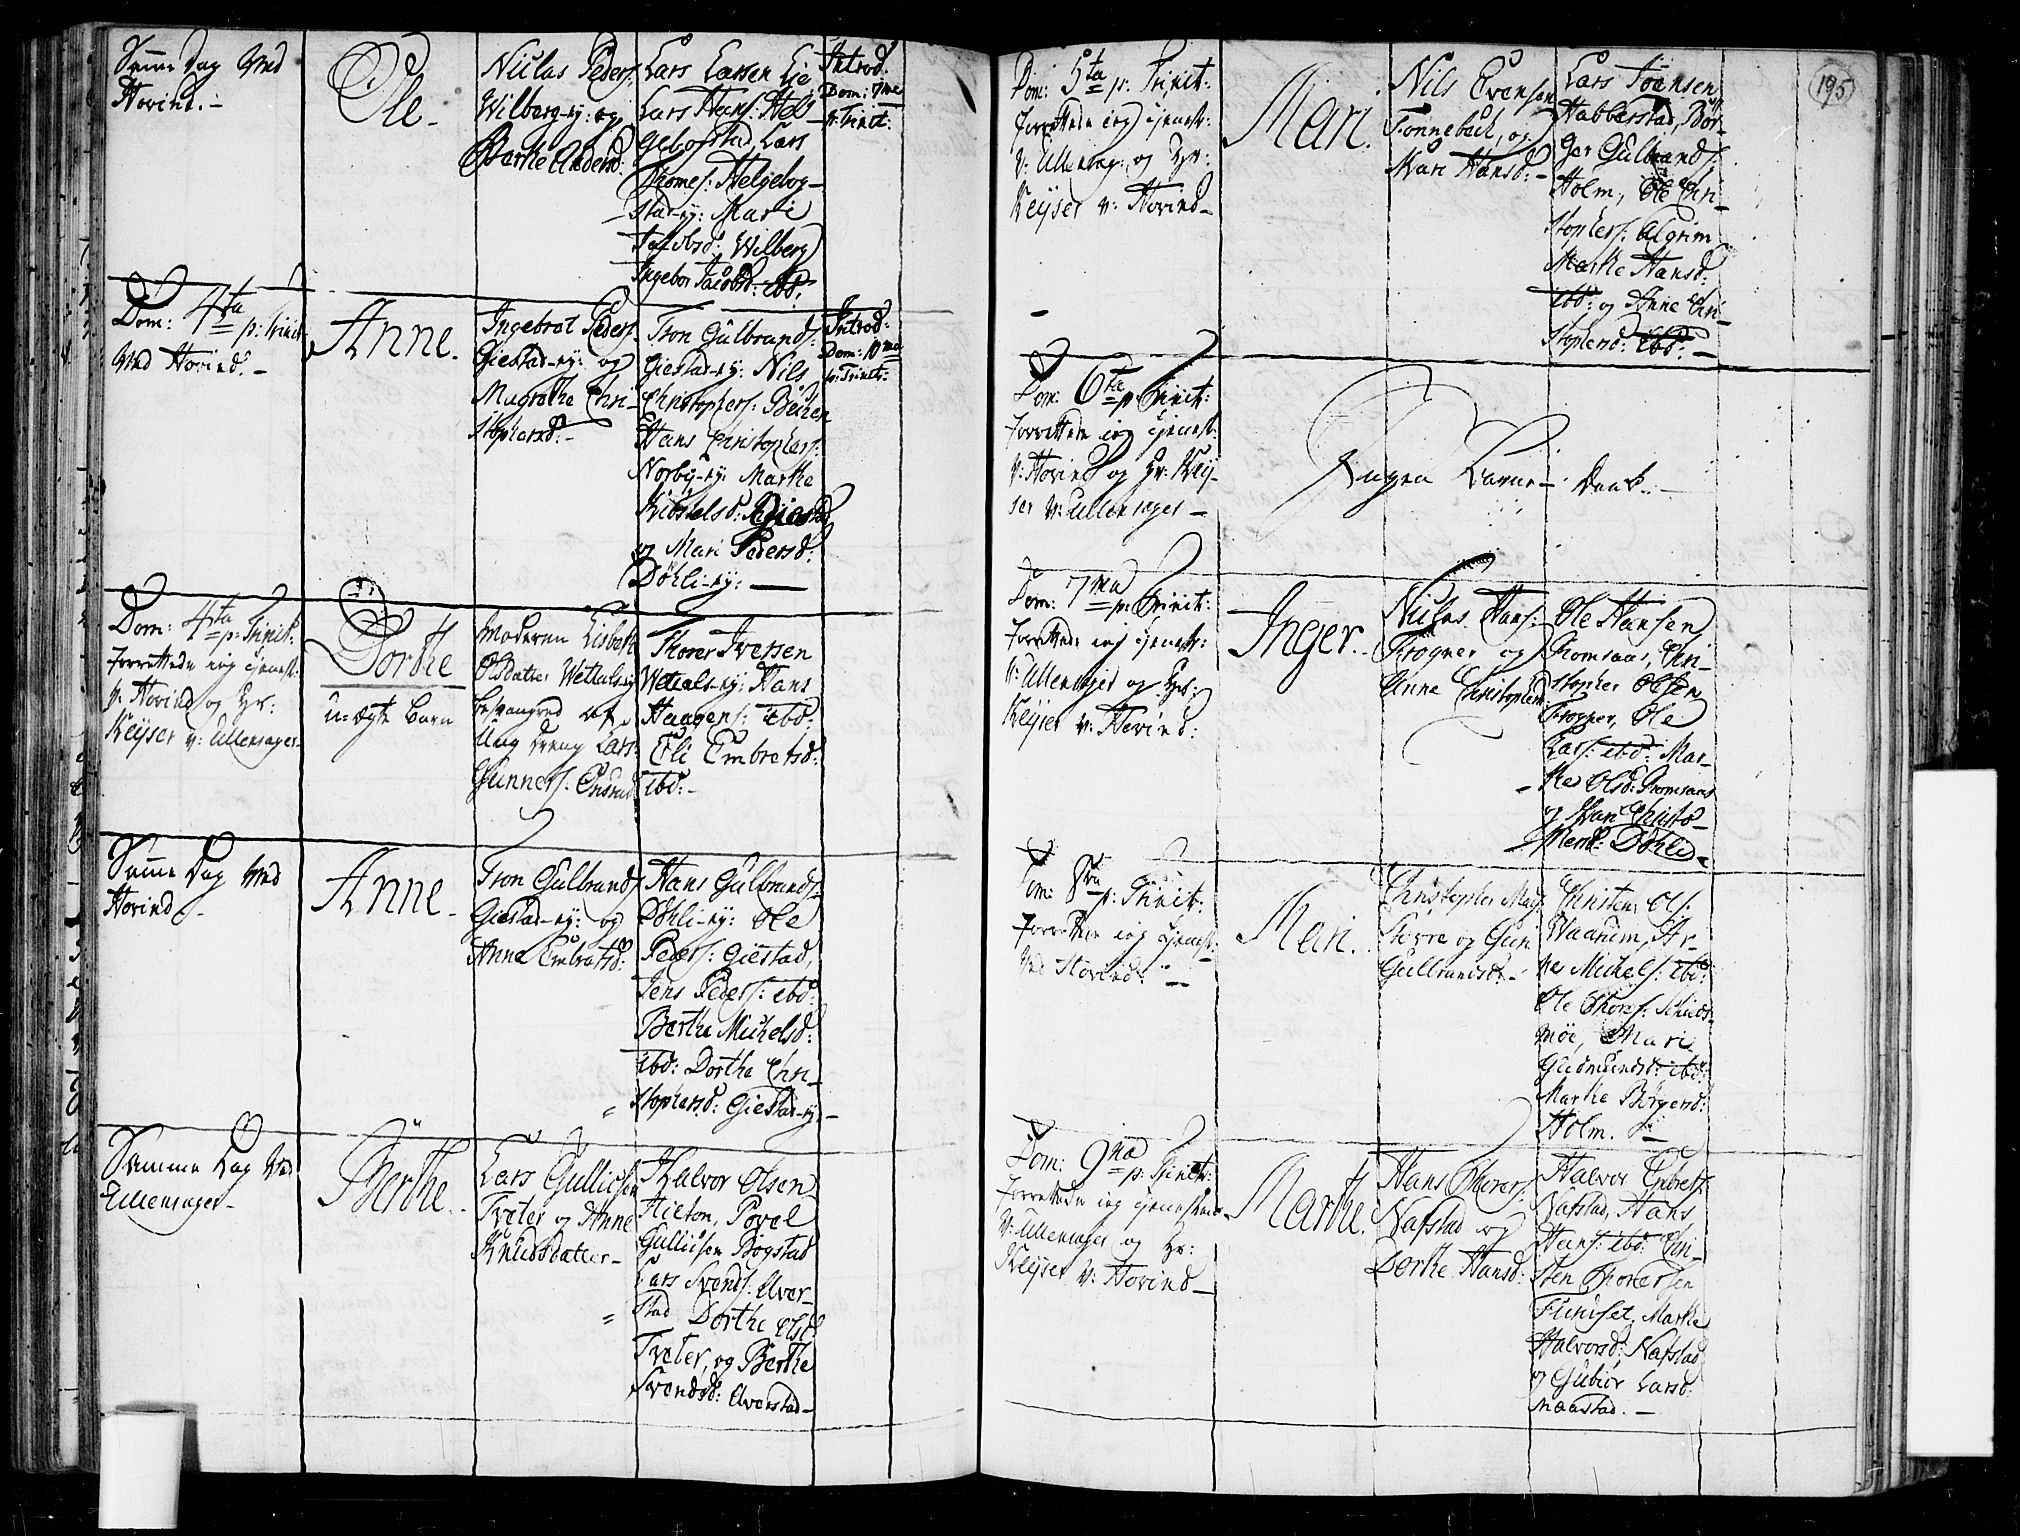 Samme Dag Ved
Hovind. -
Ole -
Niclas Peders:
Wilberg-ey: og
Barthe Andersd:
Lars Larsen Lie
Lars Hans: Hel-
gebogstad, Lars
Thomes: Helgebog-
stad-ey: Mari
Jacobsd: Wilberg
Ingebor Jacobsd: ibd:
Introd:
Dom: 7ma
p: Trinit:
Dom: 4ta p: Trinit:
Ved Hovind. -
Anne.
Ingebret Peders:
Giestad-ey: og
Magrethe Chri-
stophersd: -
Tron Gulbrands:
Giestad-ey: Nils
Christophers:
Hans Christophers:
Norby-ey: Marthe
Kiøstelsd: Giestad
og Mari Pedersd:
Døhli-ey: -
Introd:
Dom: 10ma
p: Trinit:
Dom: 4ta p: Trinit:
forrettede ieg tienest:
v: Hovind og Hr:
Keyser v: Ullensager -
Dorthe
u-ægte Barn
Moderen Lisbeth
Olsdatter Wettals-ey
besvangred af
Ung Dreng Lars
Gunners:
Thorer Iversen
Wettals-ey: Hans
Haagens: ibd:
Eli Embretsd:
ibd: -
Samme Dag Ved
Hovind -
Anne -
Tron Gulbrands:
Giestad-ey: og
Anne Embretsd:
Hans Gulbrands:
Døhli-ey: Ole
Peders: Giestad,
Jens Peders: ibd:
Berthe Michelsd:
ibd: Dorthe Chri-
stophersd: Giestad-ey: -
Samme Dag Ved
Ullensager -
Berthe.
Lars Gullicsen
Tveter og Anne
Knudsdatter -
Halvor Olsen
Hilton, Povel
Gullicsen Bogstad
Lars Svends: Elver-
stad Dorthe Olsd:
Tveter, og Berthe
Svendsd: Elverstad -
195
Dom: 5ta p: Trinit:
forrettede ieg tienest:
v: Ullensag: og Hr:
Keyser v: Hovind -
Mari.
Nils Evensen
Tonnebech, og
Mari Hansd: -
Lars Joensen
Habberstad, Bør-
ger Gulbrands:
Holm, Ole Chri-
stophers: Algrim
Marthe Hansd:
ibd: og Anne Chri-
stophersd: ibd: -
Dom: 6ta p: Trinit:
forrettede ieg tienest:
v: Hovind og Hr: Key-
ser v: Ullensager -
Ingen Barne - Daab. -
Dom: 7ma p: Trinit:
forrettede ieg tienest:
v: Ullensager og Hr:
Keyser v: Hovind:
Inger.
Niclas Hans:
Frogner og
Anne Christophersd:
Ole Hansen
Gromsaas, Chri-
stopher Olsen
Frogner, Ole
Lars: ibd: Mar-
the Olsd: Gromsaas
og Mari Christo-
phersd: Døhlie
Dom: 8va p: Trinit:
forrettede ieg tienest:
Ved Hovind. -
Mari.
Christopher
og Guri
Gulbrandsd: -
Christen Ols:
Waarum, Ar-
ne Michels: ibd:
Ole Thores:
møe, Mari
Gudmundsd: ibd:
Marthe Børgersd:
Holm. -
Dom: 9na p: Trinit:
forrettede ieg tienesten
v: Ullensager og Hr:
Keyser v: Hovind -
Marthe.
Hans Thorers:
Nafstad og
Dorthe Hansd:
Halvor Embrets:
Nafstad, Hans
Hans: ibd: Chri-
sten Thoresen
Furuset, Marthe
Halvorsd: Nafstad
og Gubiør Larsd:
-